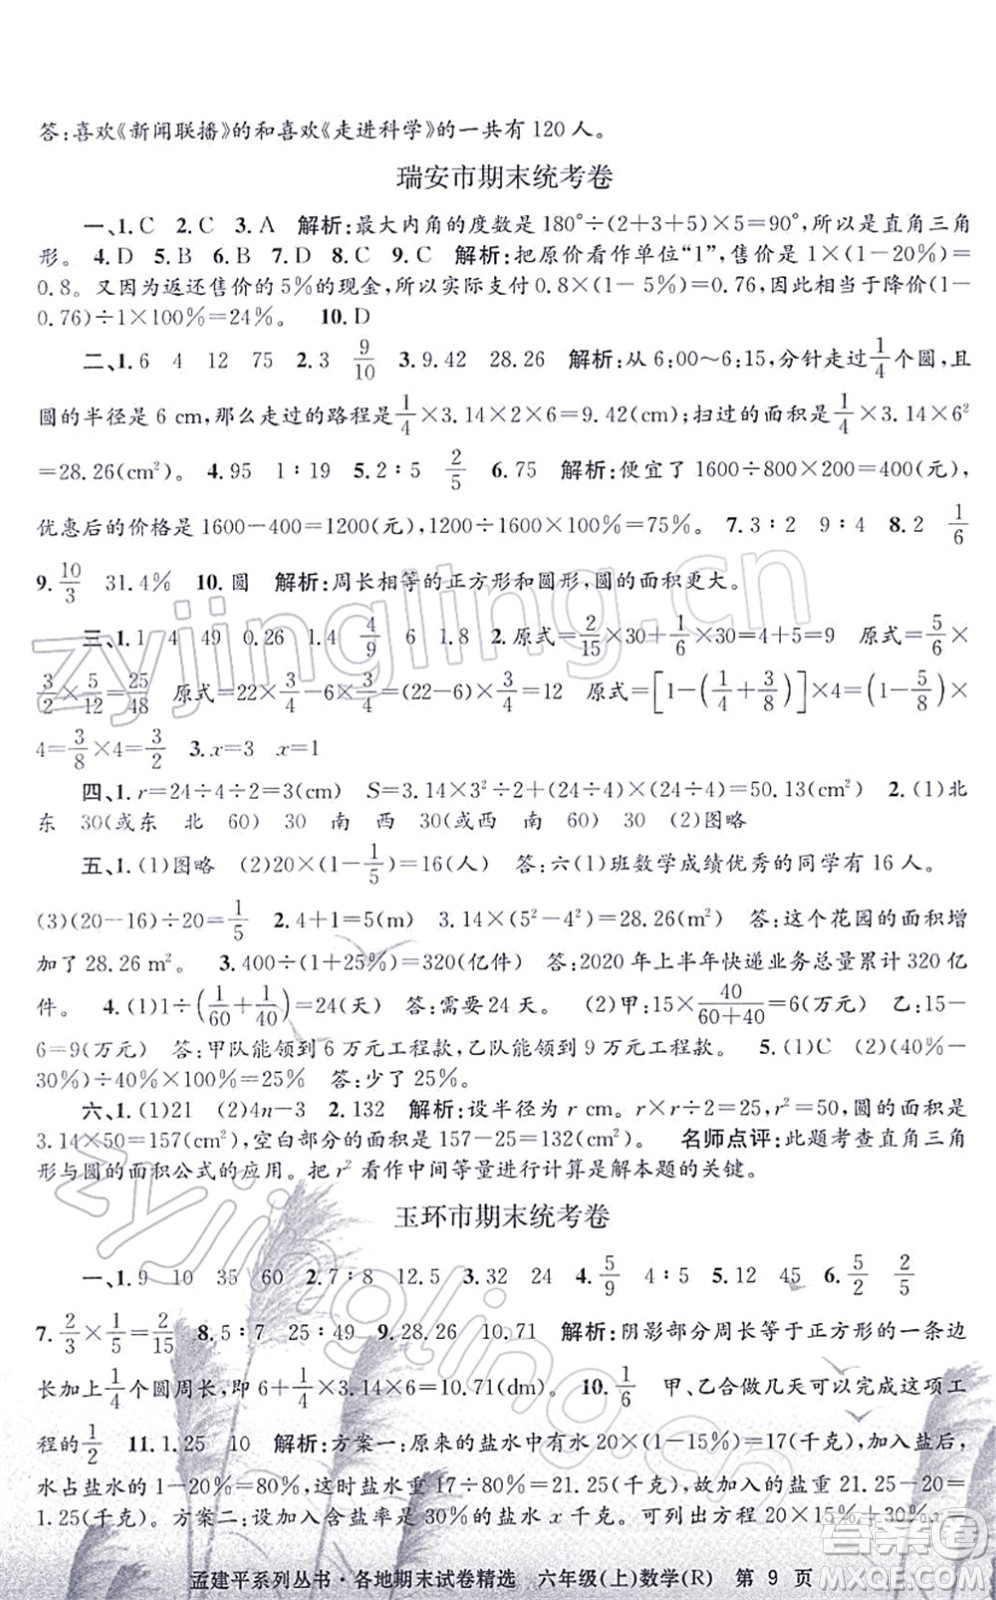 答:喜欢《新闻联播》的和喜欢《走进科学》的一共有 120 人。
瑞安市期末统考卷
一、1. C 2. C 3. A 解析:最大内角的度数是 180°÷(2+3+5)×5=90°,所以是直角三角
形。 4. D 5. B 6. B 7. D 8. C 9. C 解析:把原价看作单位“1”,售价是 1×(1-20%)=
0.8。又因为返还售价的 5%的现金,所以实际支付 0.8×(1-5%)=0.76,因此相当于降价(1-
0.76)÷1×100%=24%。 10. D
二、1. 6 4 12 75 2. 3 9/10 3. 9.42 28.26 解析:从 6:00~6:15,分针走过1/4个圆,且
圆的半径是 6 cm,那么走过的路程是1/4×3.14×2×6=9.42(cm);扫过的面积是1/4×3.14×6²
=28.26(cm²)。 4. 95 1∶19 5. 2∶5 2/5 6. 75 解析:便宜了 1600÷800×200=400(元),
优惠后的价格是 1600-400=1200(元),1200÷1600×100%=75%。 7. 3∶2 9∶4 8. 2 1/6
9. 10/3 31.4% 10. 圆 解析:周长相等的正方形和圆形,圆的面积更大。
三、1. 1 4 49 0.26 1.4 4/9 6 1.8 2. 原式=2/15×30+1/6×30=4+5=9 原式=5/6×
3/2×5/12=25/48 原式=22×3/4-6×3/4=(22-6)×3/4=12 原式=[1-(1/4+3/8)]×4=(1-5/8)×
4=3/8×4=3/2 3. x=3 x=1
四、1. r=24÷4÷2=3(cm) S=3.14×3²÷2+(24÷4)×(24÷4)=50.13(cm²) 2. (1)北
东 30(或东 北 60) 30 南 西 30(或西 南 60) 30 (2)图略
五、1. (1)图略 (2)20×(1-1/5)=16(人) 答:六(1)班数学成绩优秀的同学有 16 人。
(3)(20-16)÷20=1/5 2. 4+1=5(m) 3.14×(5²-4²)=28.26(m²) 答:这个花园的面积增
加了 28.26 m²。 3. 400÷(1+25%)=320(亿件) 答:2020 年上半年快递业务总量累计 320 亿
件。 4. (1)1÷(1/60+1/40)=24(天) 答:需要 24 天。 (2)甲:15×40/(60+40)=6(万元) 乙:15-
6=9(万元) 答:甲队能领到 6 万元工程款,乙队能领到 9 万元工程款。 5. (1)C (2)(40%-
30%)÷40%×100%=25% 答:少了 25%。
六、1. (1)21 (2)4n-3 2. 132 解析:设半径为 r cm。r×r÷2=25,r²=50,圆的面积是
3.14×50=157(cm²),空白部分的面积是 157-25=132(cm²)。 名师点评:此题考查直角三角
形与圆的面积公式的应用。把 r² 看作中间等量进行计算是解本题的关键。
玉环市期末统考卷
一、1. 9 10 35 60 2. 7∶8 12.5 3. 32 24 4. 5/9 4∶5 5. 12 45 6. 5/2 2/5
7. 2/3×1/5=2/15 8. 5∶7 25∶49 9. 28.26 10.71 解析:阴影部分周长等于正方形的一条边
长加上1/4个圆周长,即 6+1/4×3.14×6=10.71(dm)。 10. 1/6 甲、乙合做几天可以完成这项工
程的1/2 11. 1.25 10 解析:方案一:原来的盐水中有水 20×(1-15%)=17(千克),加入盐后,
水占盐水的 1-20%=80%,此时盐水重 17÷80%=21.25(千克),故加入的盐重 21.25-20=
1.25(千克)。方案二:设加入含盐率是 30%的盐水 x 千克。可列出方程 20×15%+30%x=
孟建平系列丛书·各地期末试卷精选 六年级(上)数学(R) 第 9 页
zyjingling.cn
zyjingling.cn
答案圈
MXQE.COM